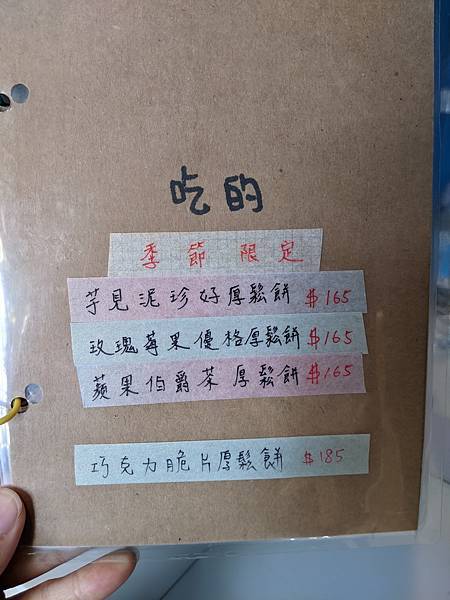 吃的
季節限定
芋見泥珍好厚鬆餅 $165
玫瑰莓果優格厚鬆餅 $165
蘋果伯爵茶厚鬆餅 $165
巧克力脆片厚鬆餅 $185